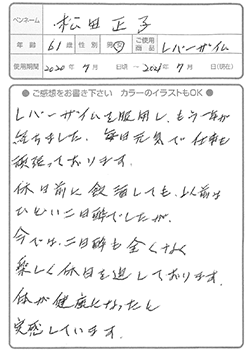 ペンネーム 松田正子
年齢 61才 性別 男・女 ご使用商品 レバーザイム
使用期間 2020年7月 日頃 ～ 2021年7月 日(現在)
●ご感想をお書き下さい カラーのイラストもOK●
レバーザイムを服用し、もう一年が
経ちました。毎日元気で仕事も
頑張っております。
休日前に飲酒しても、以前は
ひどい二日酔でしたが、
今では、二日酔も全くなく
楽しく休日を過しております。
体が健康になったと
実感しています。